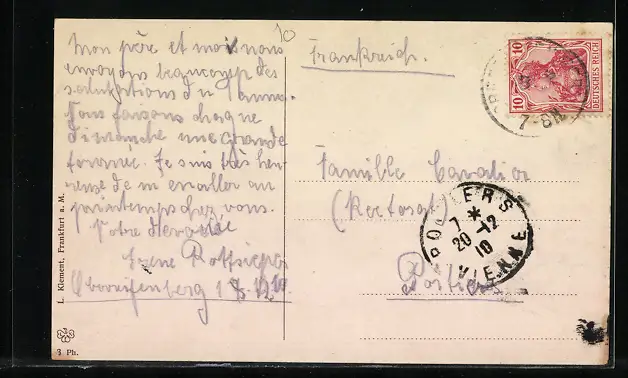 10
Mon père et moi nous
envoyons beaucoup des
salutations du Taunus.
Nous faisons chaque
dimanche une grande
tournee. Je suis très heu-
reuse de m'en aller au
printemps chez vous.
Votre devouée
Irene
Oberreifenberg 18.12.10
Frankreich.
Famille Cavalier
(Rectorat)
Poitiers
10 10
DEUTSCHES REICH
7-8N
POITIERS
7 *
20-12
10
VIENNE
L. Klement, Frankfurt a. M.
3 Ph.